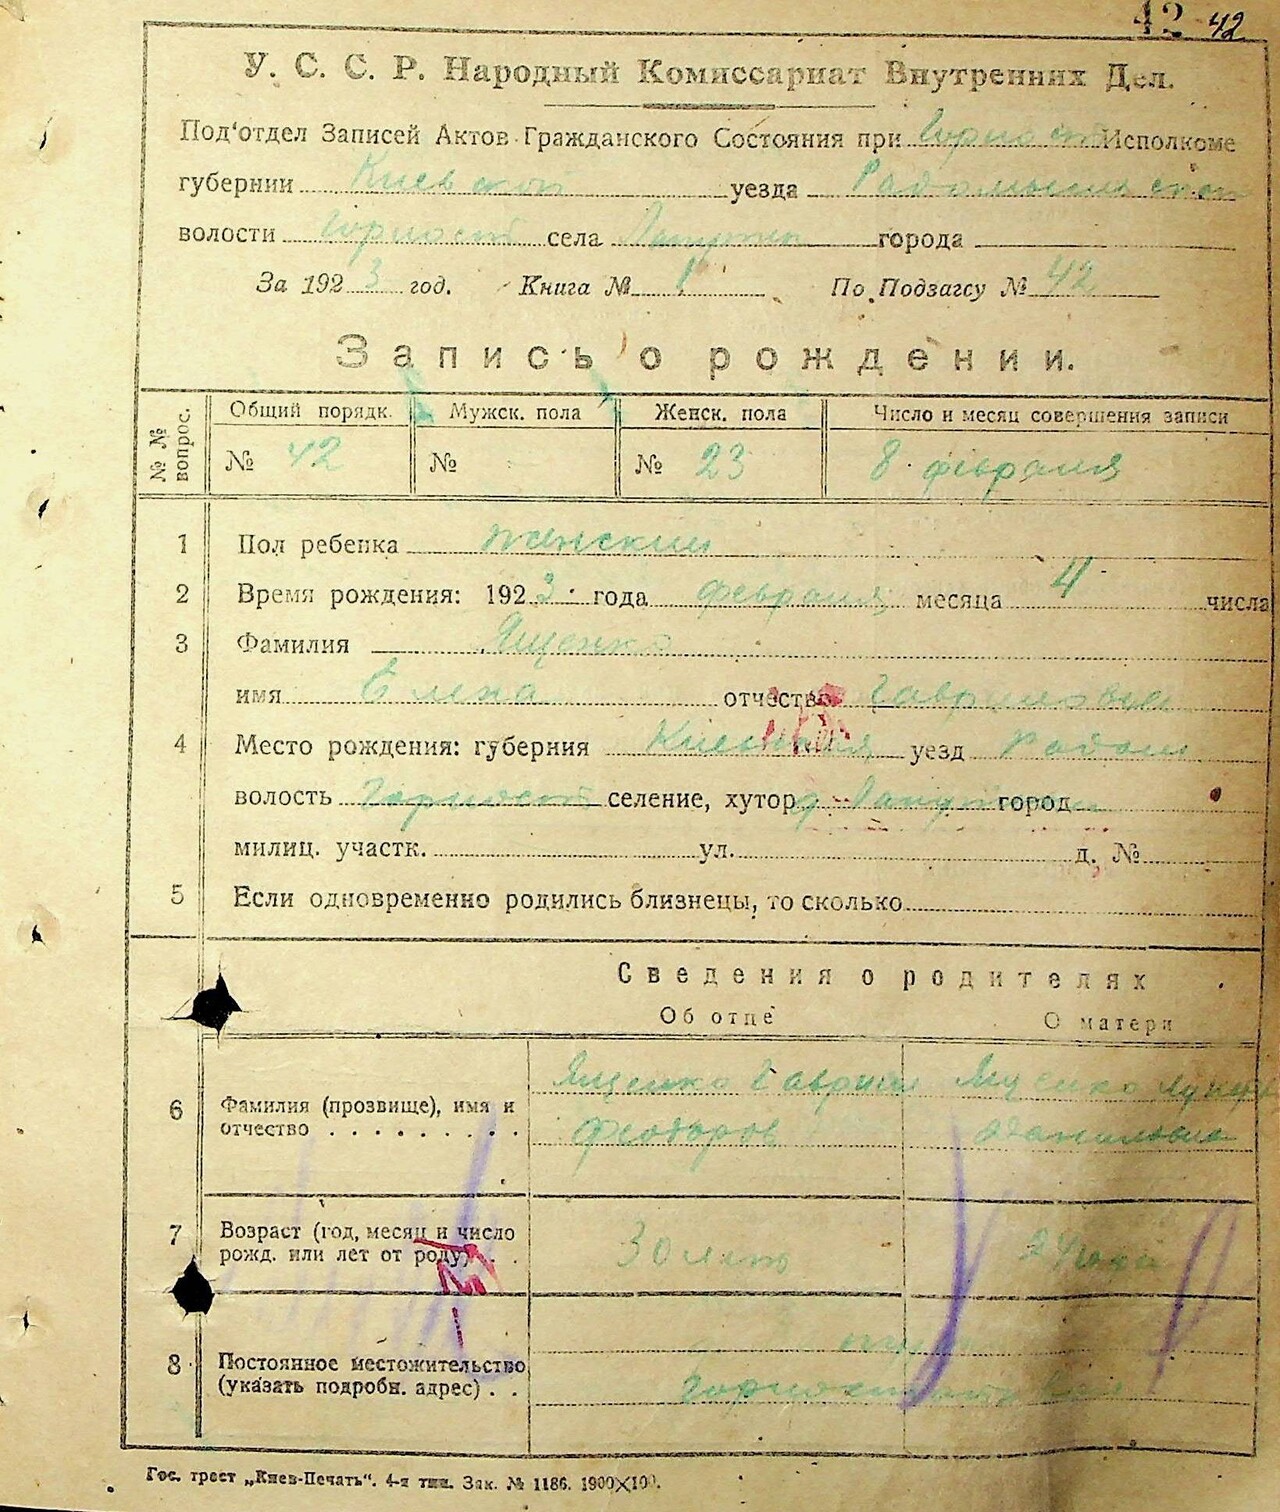 42 42
У. С. С. Р. Народный Комиссариат Внутренних Дел.
Под'отдел Записей Актов Гражданского Состояния при Горност Исполкоме
губернии Киевской уезда Радомысльской
волости Горност села города
За 1923 год. Книга № 1 По Подзагсу № 42
Запись о рождении.
№№ вопрос. Общий порядк. Мужск. пола Женск. пола Число и месяц совершения записи
№ 42 № № 23 8 февраля
1 Пол ребенка женский
2 Время рождения: 1923 года февраля месяца 4 числа
3 Фамилия Ященко
имя Елена отчество Гавриловна
4 Место рождения: губерния Киевская уезд Радом
волость Горност селение, хутор город
милиц. участк. ул. д. №
5 Если одновременно родились близнецы, то сколько
Сведения о родителях
Об отце О матери
Ященко Гаврил Ященко
6 Фамилия (прозвище), имя и
отчество Феодоров Даниловна
7 Возраст (год, месяц и число
рожд. или лет от роду) 30 лет 24 года
8 Постоянное местожительство
(указать подробн. адрес)
Гос. трест „Киев-Печать“. 4-я тип. Зак. № 1186. 1900×100.